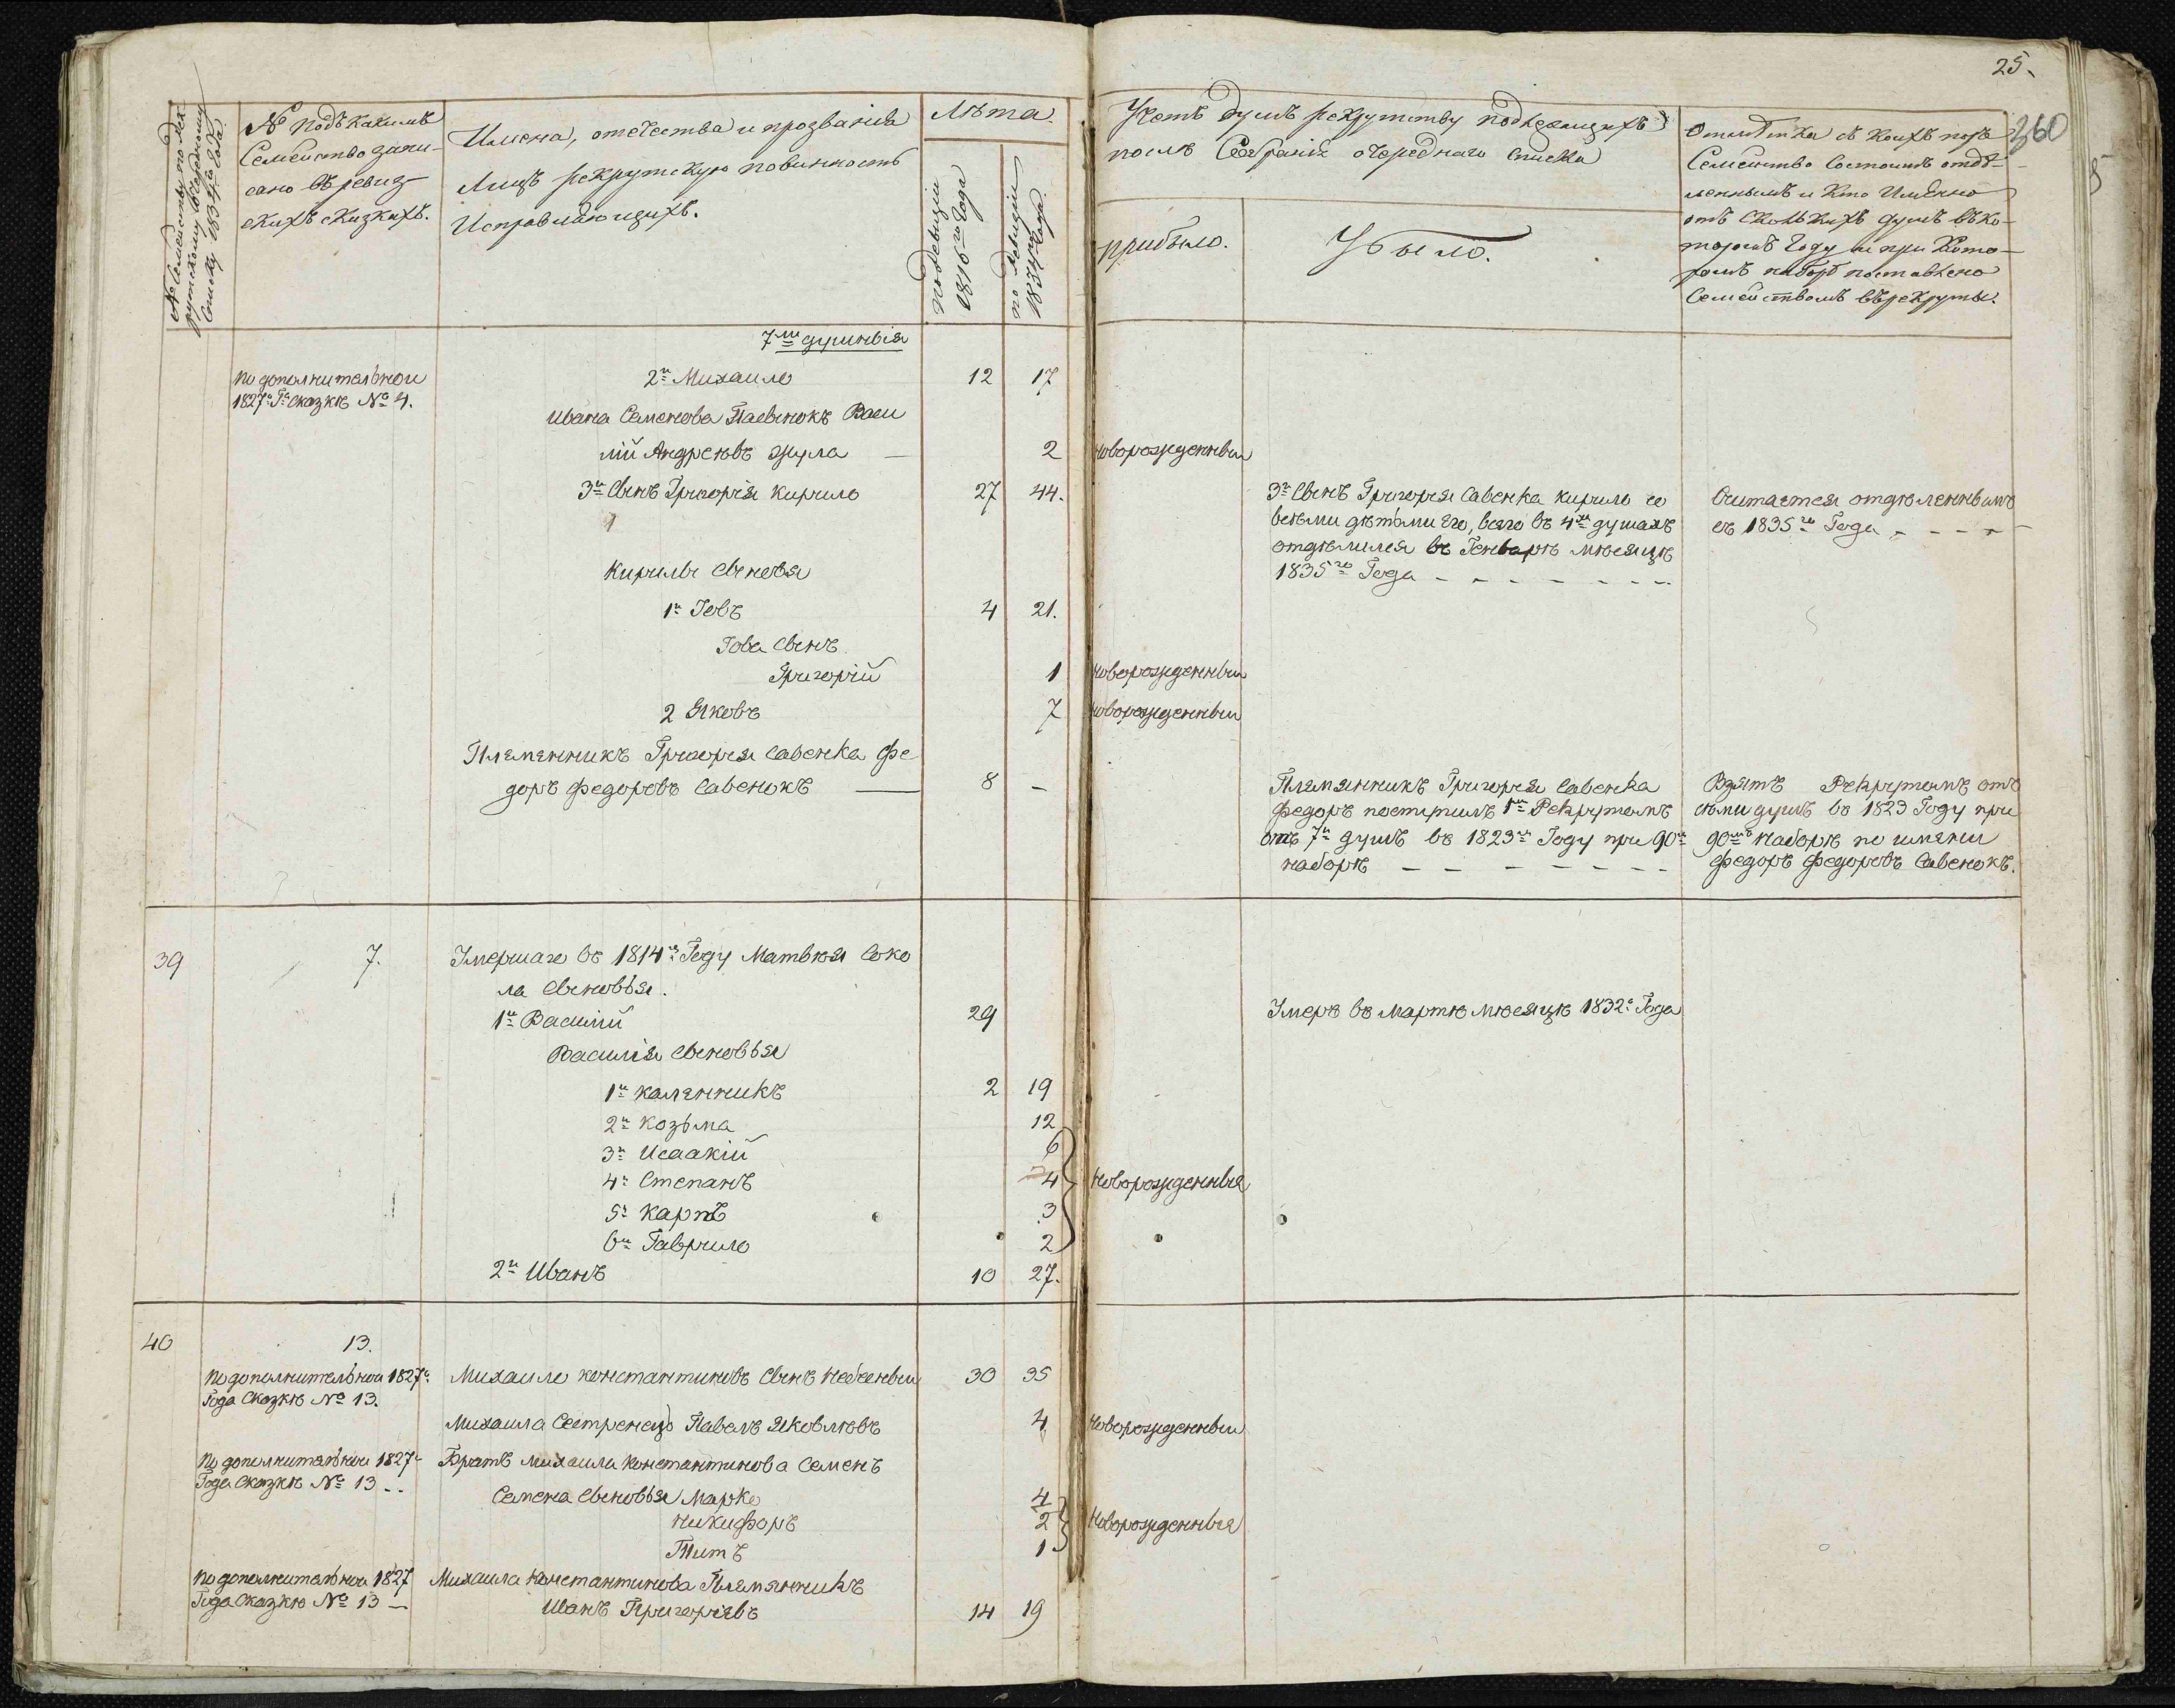 25.
360
№ Семейству по рек
рутскому очередному
Списку 1834го года
№ подъ какимъ
Семейство запи-
сано въ ревиз-
скихъ сказкахъ.
Имена, отечества и прозванiя
Лицъ рекрутскую повинность
Исправляющихъ.
Лѣта
по Ревизiи
1816го Года
по Ревизiи
1834го Года.
Учетъ душъ рекрутству подлежащихъ
послѣ Собранiя очереднаго списка
прибыло.
Убыло.
Отмѣтка съ коихъ поръ
Семейство Состоитъ отдѣ-
леннымъ и Кто Именно
отъ сколькихъ душъ въ ко-
торомъ Году и при Кото-
ромъ наборѣ поставлено
Семействомъ въ рекруты.
7ми душныя
по дополнительной
1827го Га сказкѣ № 4.
2й Михаило 12 17
Ивана Семенова Пасынокъ Васи
лiй Андреевъ Жула — 2 новорожденный
3й Сынъ Григорiя Кирило 27 44.
3й Сынъ Григорiя Савенка Кирило со
всѣми дѣтьми Его, всего въ 4хъ душахъ
отдѣлился въ Генварѣ мѣсяцѣ
1835го Года - - - - - - -
Считается отдѣленнымъ
съ 1835го Года - - - -
Кирилы Сыновья
1й Iовъ 4 21.
Iова Сынъ
Григорiй 1 новорожденный
2 Яковъ 7 новорожденный
Племянникъ Григорiя Савенка Фе
доръ Федоровъ Савенокъ — 8 —
Племянникъ Григорiя Савенка
Федоръ поступилъ 1мъ Рекрутомъ
отъ 7и душъ въ 1823мъ Году при 90мъ
наборѣ - - - - - - -
Взятъ Рекрутомъ отъ
семи душъ въ 1823 Году при
90мъ Наборѣ по имяни
Федоръ Федоровъ Савенокъ.
39 7. Умершаго въ 1814мъ Году Матвѣя Соко
ла Сыновья.
1й Василiй 29 Умеръ въ мартѣ мѣсяцѣ 1832го Года
Василiя Сыновья
1й Каленникъ 2 19
2й Козьма 12
3й Исаакiй 6
4й Степанъ 4 Новорожденныя
5й Карпъ 3
6й Гаврило 2
2й Иванъ 10 27.
40 13.
По дополнительной 1827го
Года Сказкѣ № 13.
Михаило Константиновъ Сынъ 30 35
Михаила Сестренецъ Павелъ Яковлевъ 4 Новорожденный
По дополнительной 1827го
Года Сказкѣ № 13 --
Братъ Михаила Константинова Семенъ
Семена Сыновья Марко 4
Никифоръ 2 Новорожденныя
Титъ 1
По дополнительной 1827
Года Сказкѣ № 13 —
Михаила Константинова Племянникъ
Иванъ Григорiевъ 14 19